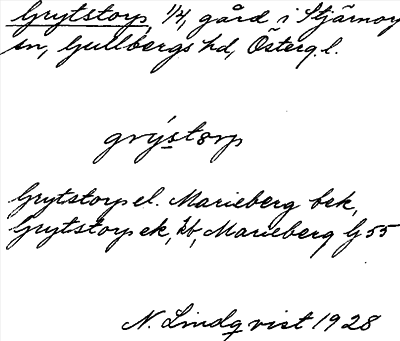 Grytstorp, 1/4, gård i Stjärnor
sn, Gullbergs hd, Österg. l.
grýstorp
Grytstorp el. Marieberg bek,
Grytstorp ek, kb, Marieberg G 55
N. Lindqvist 1928